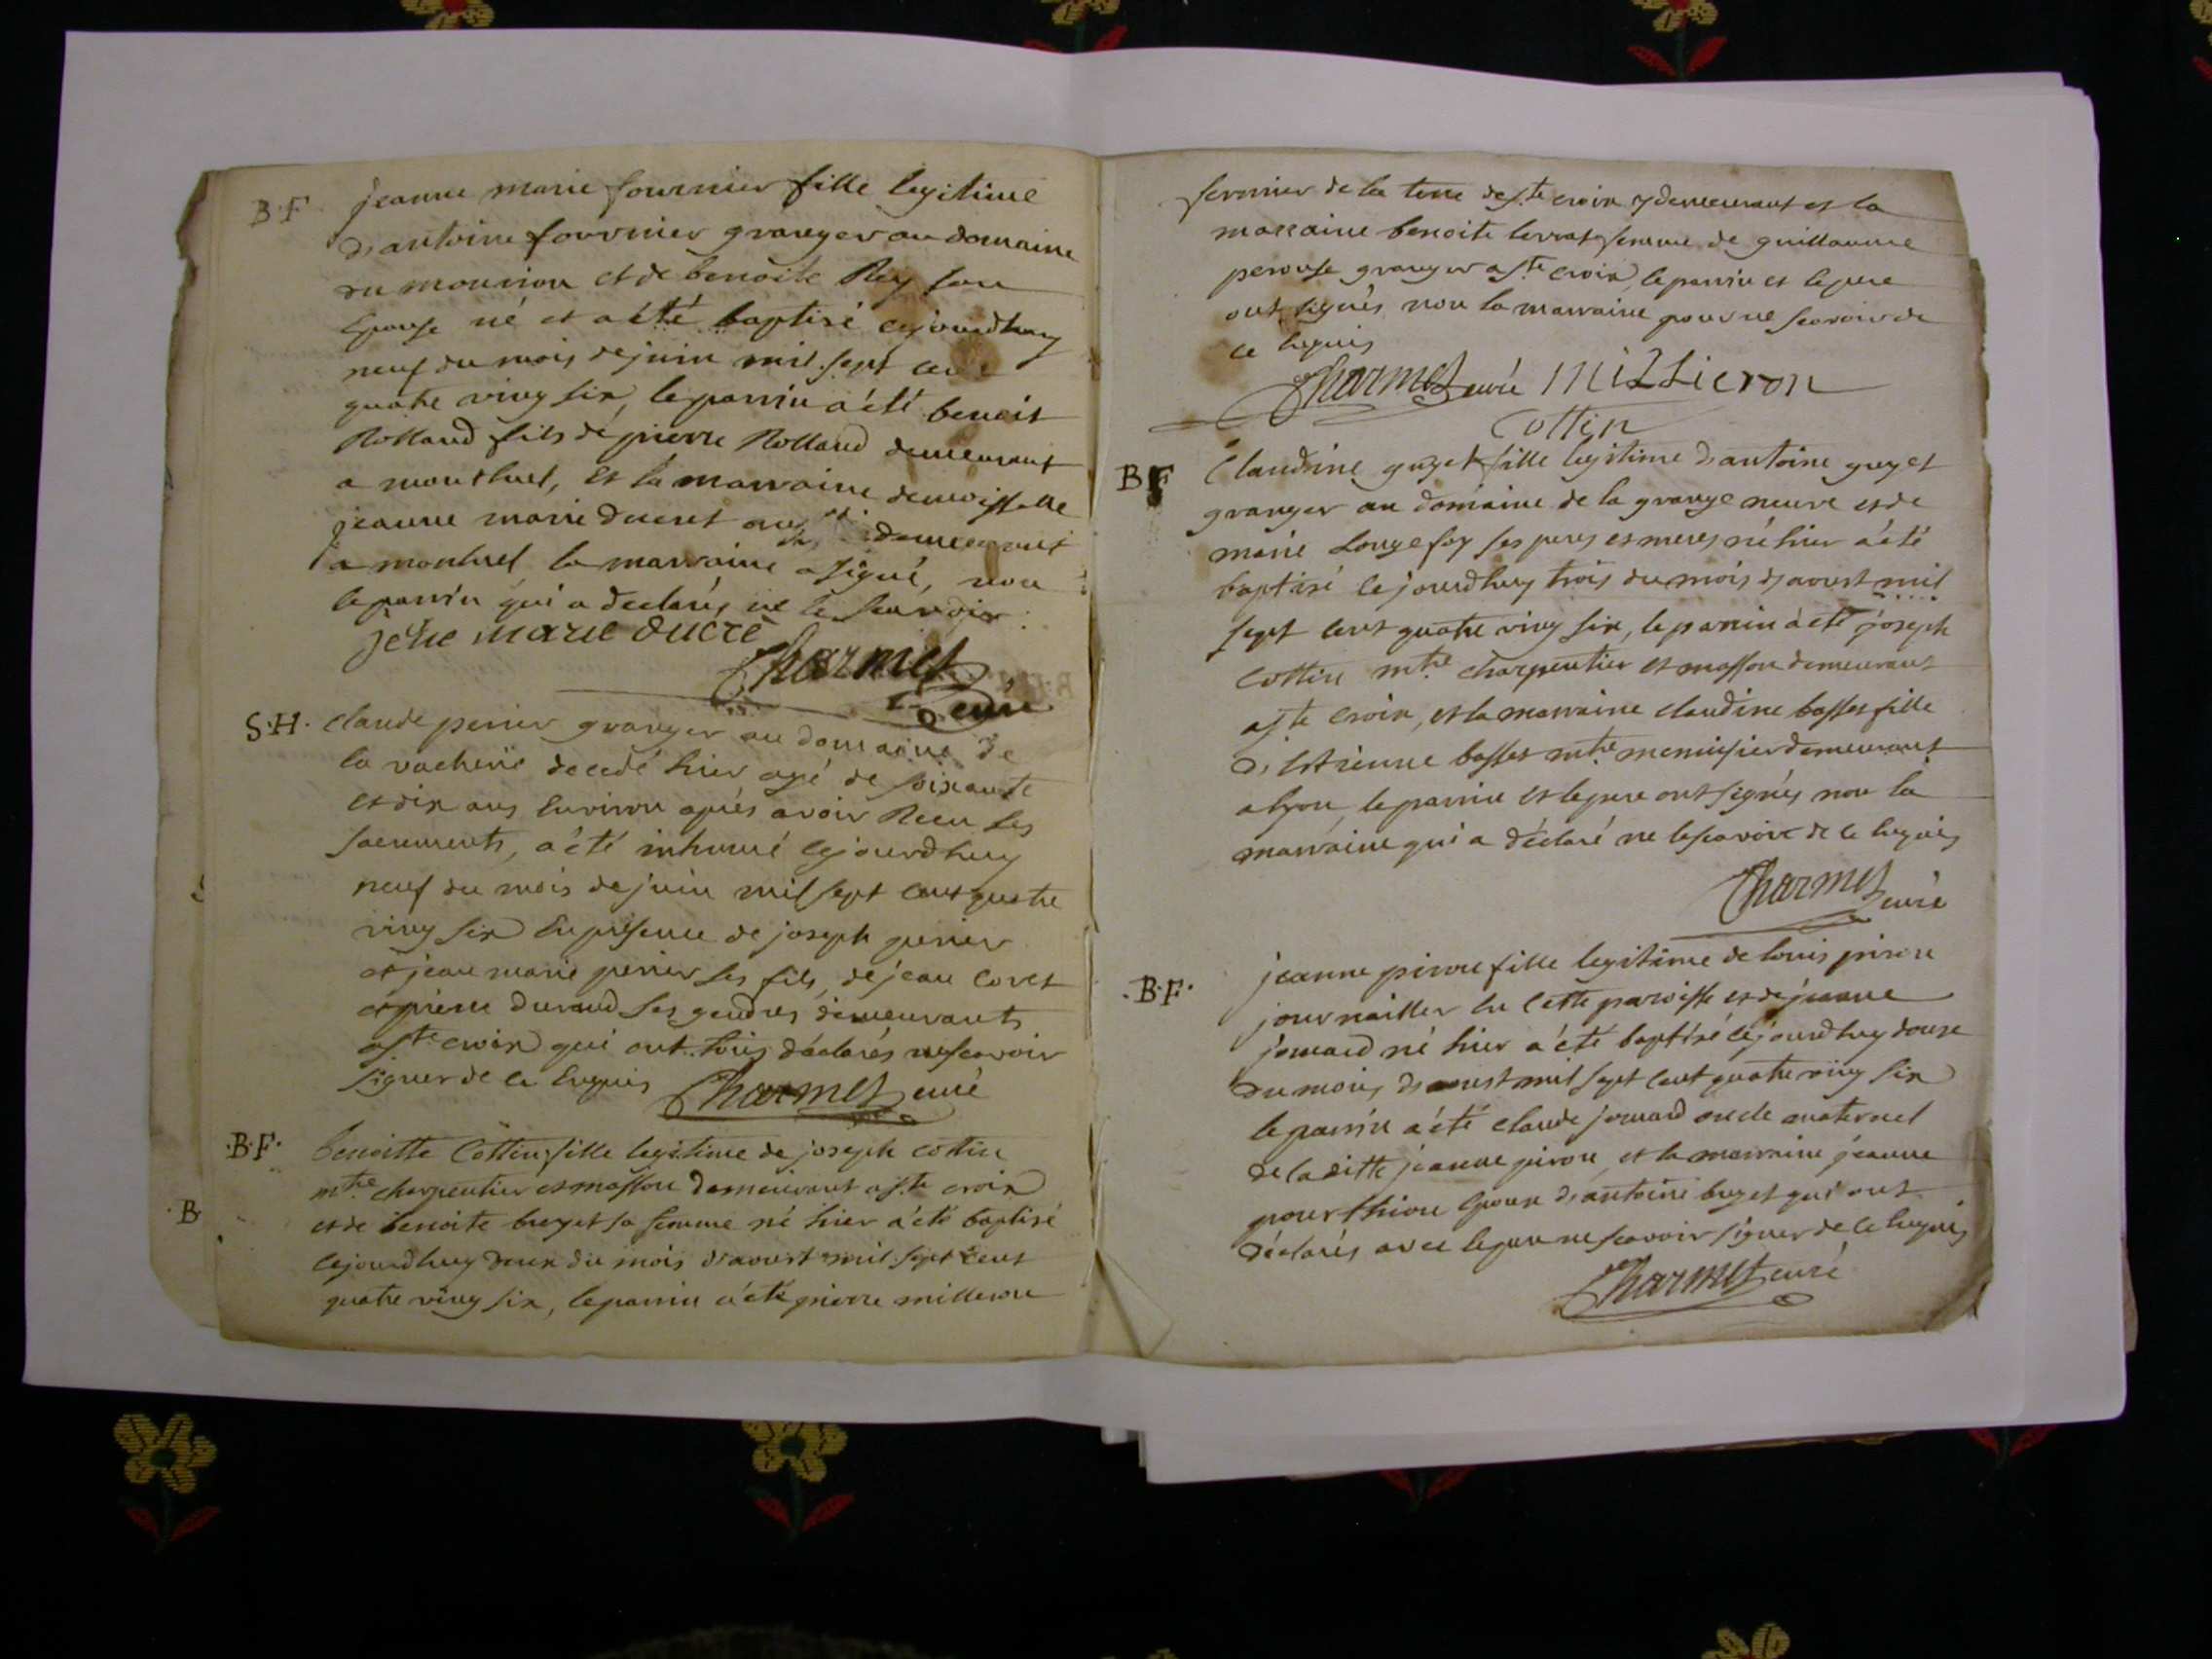 B.F. jeanne marie fournier fille legitime
d'antoine fournier granger au domaine
du mounion et de benoite Rey son
Epouse né et a été baptisé cejourdhuy
neuf du mois de juin mil sept cent
quatre ving six, le parrin a été benoit
Rolland fils de pierre Rolland demeurant
a montluel, et la marraine demoiselle
jeanne marie ducret demeurant
a montluel la marraine a signé, non
le parrin qui a declarés ne le scavoir.
jene marie ducre
Charmet
curé
S.H. claude perier granger au domaine de
la vacherie decedé hier agé de soixante
et dix ans environ aprés avoir Recu les
sacrements, a été inhumé cejourdhuy
neuf du mois de juin mil sept cent quatre
ving six en présence de joseph perier
et jean marie perier ses fils, de jean coret
et pierre durand ses gendres demeurants
a ste croix qui ont tous déclarés ne scavoir
signer de ce Enquis Charmet curé
.B.F. benoitte Cottin fille legitime de joseph cottin
mtre charpentier et masson demeurant a ste croix
et de benoite breyet sa femme né hier a été baptisé
cejourdhuy deux du mois d'aoust mil sept cent
quatre ving six, le parrin a été pierre milleron
.B.
fermier de la terre de ste croix y demeurant et la
marraine benoite femme de guillaume
perouse granger a ste croix, le parrin et le pere
ont signés non la marraine pour ne scavoir de
ce Enquis
Charmet curé Millieron
Cottin
BF Claudine guyet fille legitime d'antoine guyet
granger au domaine de la grange neuve et de
marie Longefay ses peres et meres né hier a été
baptisé cejourdhuy trois du mois d'aoust mil
sept cent quatre ving six, le parrin a été joseph
Cottin mtre charpentier et masson demeurant
a ste croix, et la marraine claudine basset fille
d'Estienne basset mtre menuisier demeurant
a lyon, le parrin et le pere ont signés non la
marraine qui a déclaré ne le scavoir de ce Enquis
Charmet curé
.B.F. jeanne pirou fille legitime de louis pirou
journailler en cette paroisse et de jeanne
jomard né hier a été baptisé cejourdhuy douze
du mois d'aoust mil sept cent quatre ving six
le parrin a été claude jomard oncle maternel
de la ditte jeanne pirou, et la marraine jeanne
d'antoine breyet qui ont
déclarés avec le pere ne scavoir signer de ce Enquis
Charmet curé